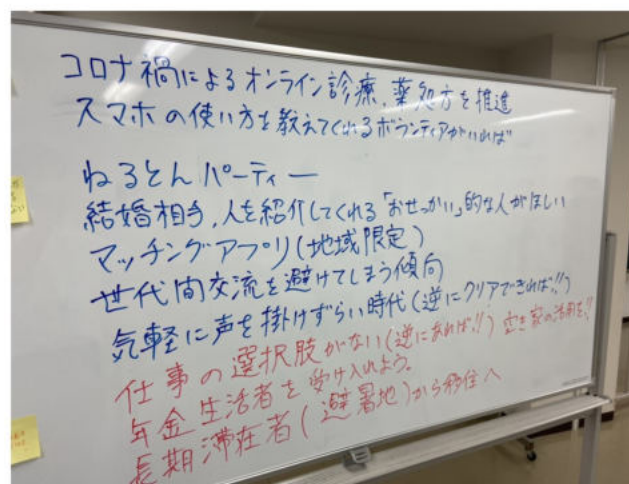 コロナ禍によるオンライン診療、薬処方を推進
スマホの使い方を教えてくれるボランティアがいれば
ねるとんパーティー
結婚相手、人を紹介してくれる「おせっかい」的な人がほしい
マッチングアプリ(地域限定)
世代間交流を避けてしまう傾向
気軽に声を掛けずらい時代(逆にクリアできれば!!)
仕事の選択肢がない(逆にあれば!!) 空き家の活用を!!
年金生活者を受け入れよう。
長期滞在者(避暑地)から移住へ